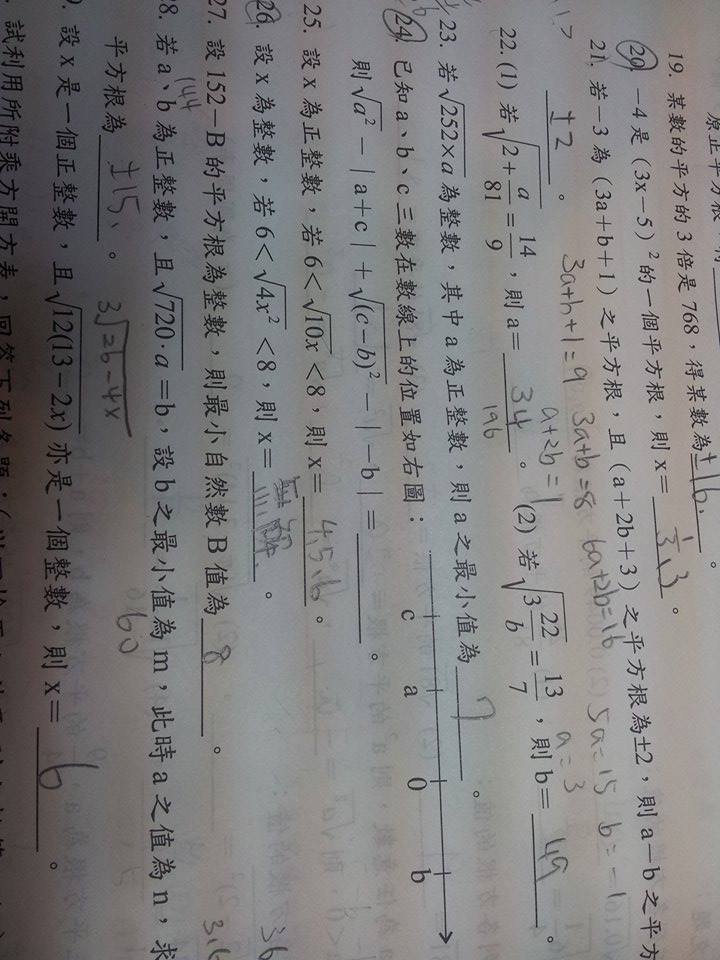 19. 某數的平方的3倍是768,得某數為 ±16 。
20. −4是(3x−5)²的一個平方根,則x= 1/3, 3 。
21. 若−3為(3a+b+1)之平方根,且(a+2b+3)之平方根為±2,則a−b之平方
±2 。
3a+b+1=9 3a+b=8 6a+2b=16 5a=15 b=-1
a+2b=1 a=3
22. (1) 若√(2+a/81)=14/9,則a= 34 。 (2) 若√(3 22/b)=13/7,則b= 49 。
196
23. 若√(252×a)為整數,其中a為正整數,則a之最小值為 7 。
24. 已知a、b、c三數在數線上的位置如右圖:
c a 0 b
則√a²−|a+c|+√(c−b)²−|−b|= 。
25. 設x為正整數,若6<√10x<8,則x= 4,5,6 。
26. 設x為整數,若6<√4x²<8,則x= 。
27. 設152−B的平方根為整數,則最小自然數B值為 8 。
144
28. 若a、b為正整數,且√(720·a)=b,設b之最小值為m,此時a之值為n,求
60
平方根為 ±15 。
3√2b-4x
設x是一個正整數,且√(12(13−2x))亦是一個整數,則x= 6 。
試利用所附乘方開方表,回答下列各題: